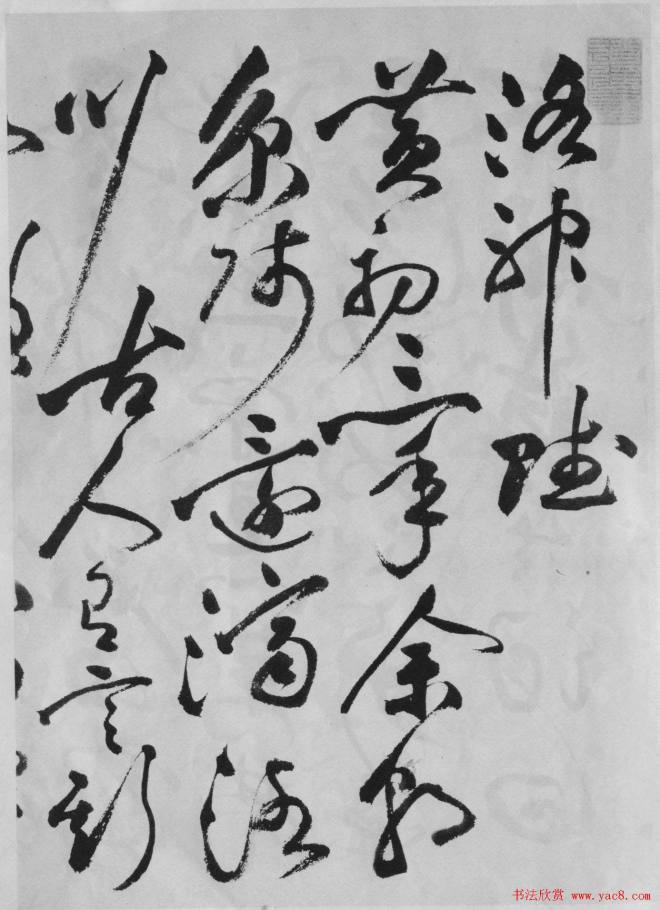 洛神賦
黄初三年余朝
京師還濟洛
川古人有言斯
书法欣赏 www.yac8.com